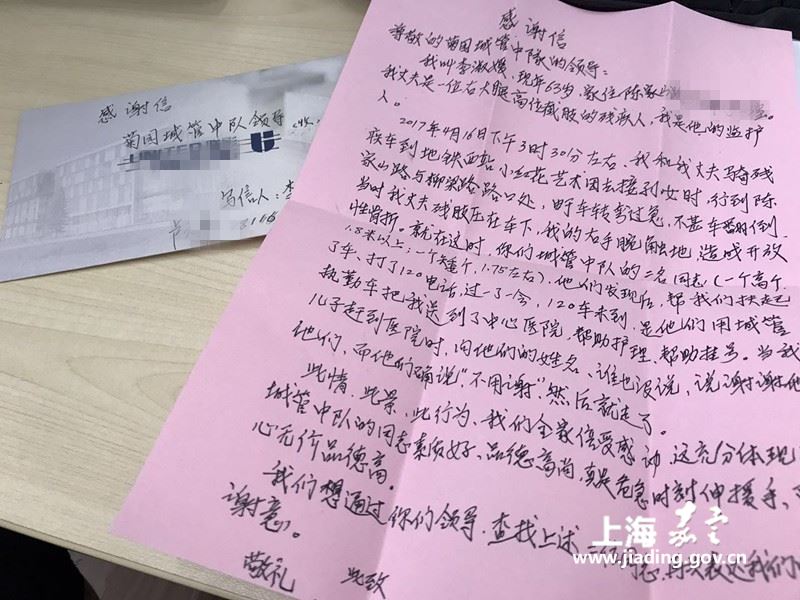 感谢信
菊园城管中队领导 收.
写信人:李
感谢信
尊敬的菊园城管中队的领导:
我叫李淑媛,现年63岁,家住陈家山
我丈夫是一位右大腿高位截肢的残疾人,我是他的监护
人。
2017年4月16日下午3时30分左右,我和我丈夫骑残
疾车到地铁西站小红花艺术团去接孙女时,行到陈
家山路与柳梁路路口处,由于车转弯过急,不甚车翻倒.
当时我丈夫残肢压在车下,我的右手腕触地,造成开放
性骨折。就在这时,你们城管中队的二名同志(一个高个
1.8米以上;一个矮个,1.75左右),他们发现后,帮我们扶起
了车、打了120电话,过了一会,120车未到,是他们用城管
执勤车把我送到了中心医院,帮助护理、帮助挂号。当我
儿子赶到医院时,问他们的姓名,谁也没说,说谢谢他
他们,而他们确说"不用谢".然后就走了。
此情、此景、此行为、我们全家倍受感动,这充分体现
城管中队的同志素质好、品德高尚,真是危急时刻伸援手、
心无作品德高。
我们想通过你们领导,查找上述二
谢意。
此致
敬礼
上海嘉定
www.jiading.gov.cn